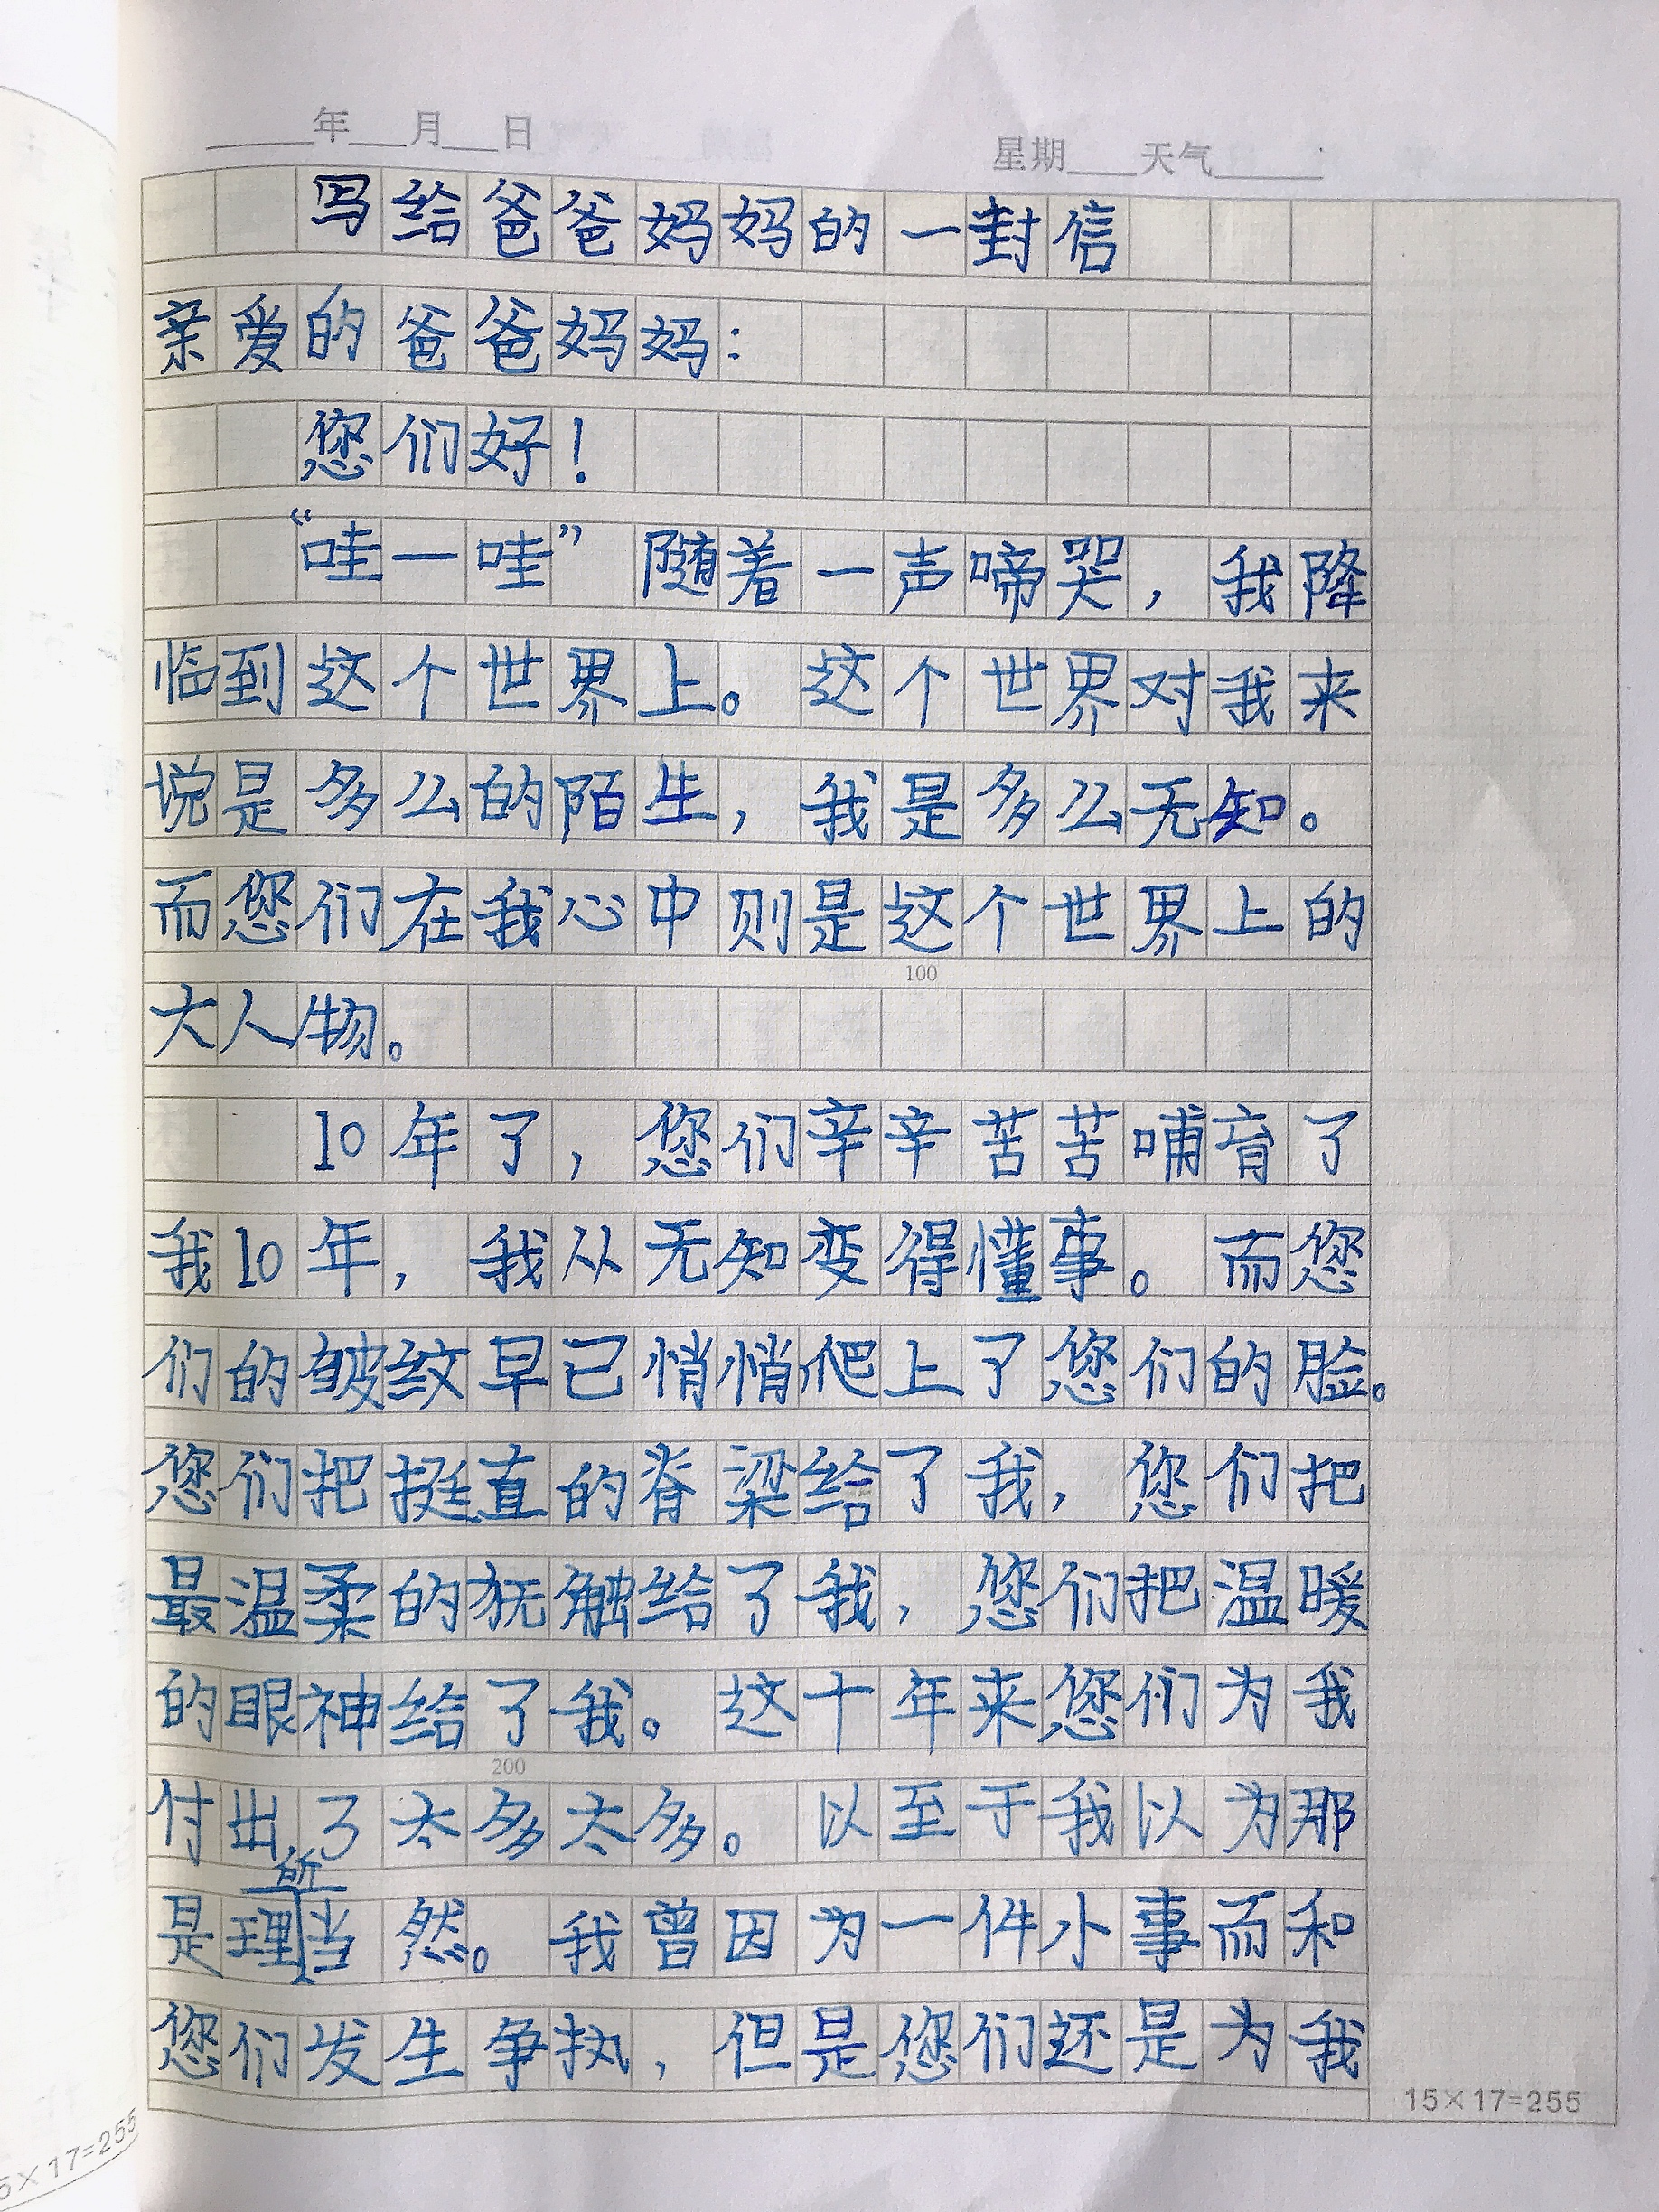 ____年___月___日
星期____天气______
写给爸爸妈妈的一封信
亲爱的爸爸妈妈：
您们好！
“哇一哇”随着一声啼哭，我降
临到这个世界上。这个世界对我来
说是多么的陌生，我是多么无知。
而您们在我心中则是这个世界上的
100
大人物。
10年了，您们辛辛苦苦哺育了
我10年，我从无知变得懂事。而您
们的皱纹早已悄悄爬上了您们的脸。
您们把挺直的脊梁给了我，您们把
最温柔的抚触给了我，您们把温暖
的眼神给了我。这十年来您们为我
200
付出了太多太多。以至于我以为那
是理所当然。我曾因为一件小事而和
您们发生争执，但是您们还是为我
15×17=255
5×17=255